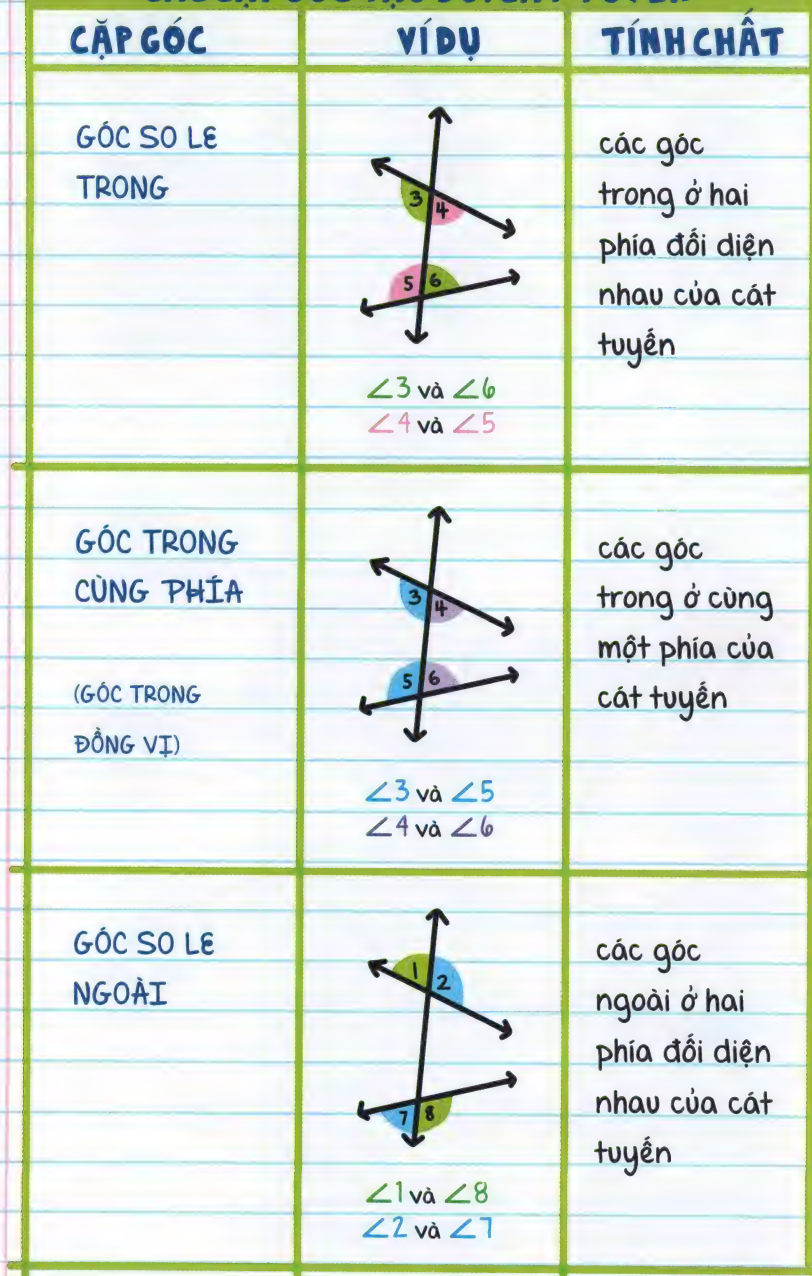 CẶP GÓC
VÍ DỤ
TÍNH CHẤT
GÓC SO LE
TRONG
3
4
5 6
∠3 và ∠6
∠4 và ∠5
các góc
trong ở hai
phía đối diện
nhau của cát
tuyến
GÓC TRONG
CÙNG PHÍA
(GÓC TRONG
ĐỒNG VỊ)
3
4
5 6
∠3 và ∠5
∠4 và ∠6
các góc
trong ở cùng
một phía của
cát tuyến
GÓC SO LE
NGOÀI
1
2
7 8
∠1 và ∠8
∠2 và ∠7
các góc
ngoài ở hai
phía đối diện
nhau của cát
tuyến